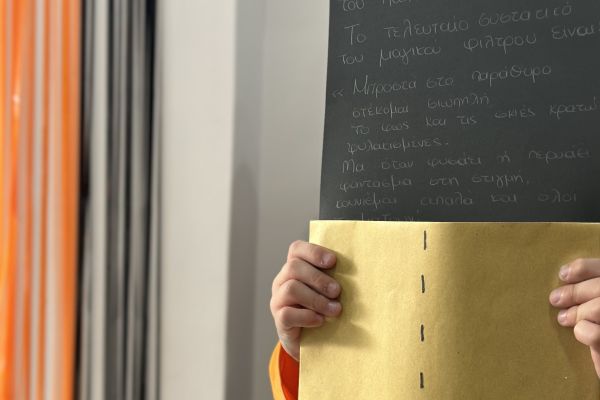 Το τελευταίο συστατικό
του μαγικού φίλτρου είναι
« Μπροστά στο παράθυρο
στέκομαι σιωπηλή
το φως και τις σκιές κρατώ
φυλακισμένες.
Μα όταν φυσάει ή περνάει
φάντασμα στη στιγμή,
κουνιέμαι απαλά και όλοι